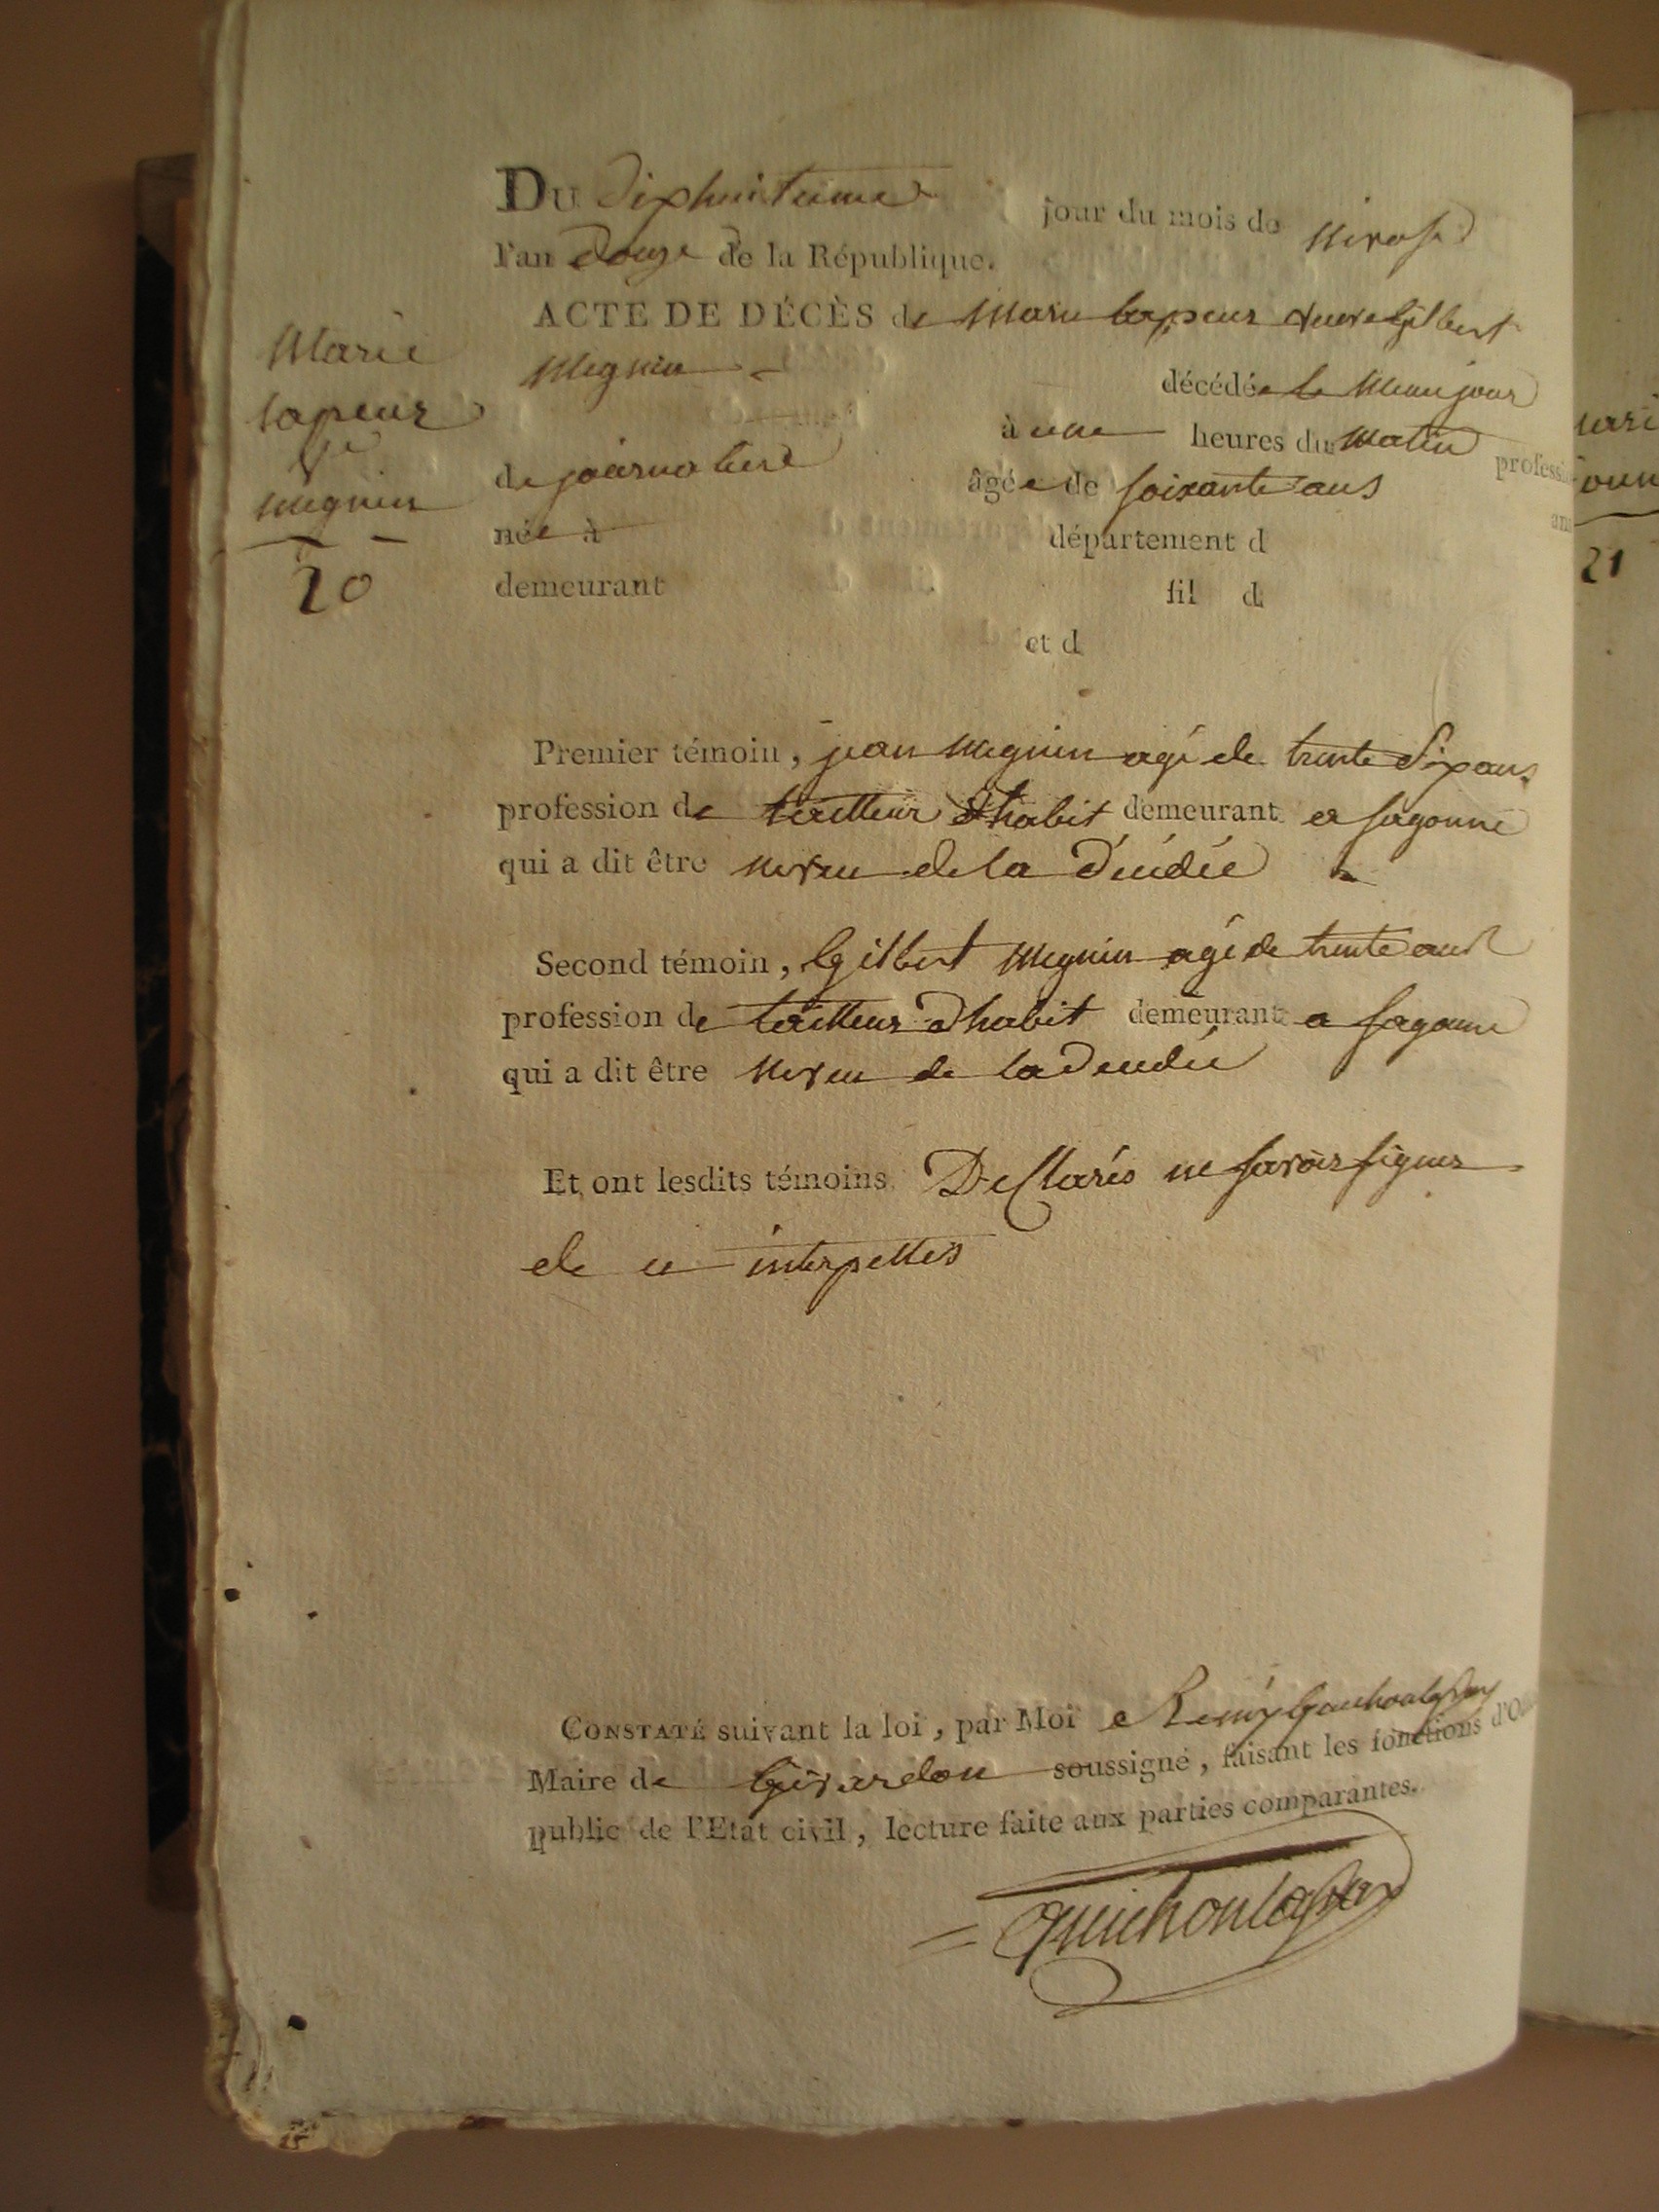 Du dixhuitieme jour du mois de nivose
l'an douze de la République.
ACTE DE DÉCÈS de Marie lapeur veuve Gilbert
Megnin
décédée le meme jour
à une heures du matin
profess
de journaliere âgée de soixante ans
an
née à département d
demeurant fil d
et d
Marie
lapeur
Ve
megnin
20
Premier témoin, jean Megnin agé de trente six ans
profession de tailleur d'habit demeurant a sagonne
qui a dit être neveu de la décédée
Second témoin, Gilbert Megnin agé de trente ans
profession de tailleur dhabit demeurant a sagonne
qui a dit être neveu de la décédée
Et ont lesdits témoins Declarés ne savoir signer
de ce interpellés
CONSTATÉ suivant la loi, par Moi Remy
Maire de Givardon soussigné, faisant les fonctions d'O
public de l'Etat civil, lecture faite aux parties comparantes.
21